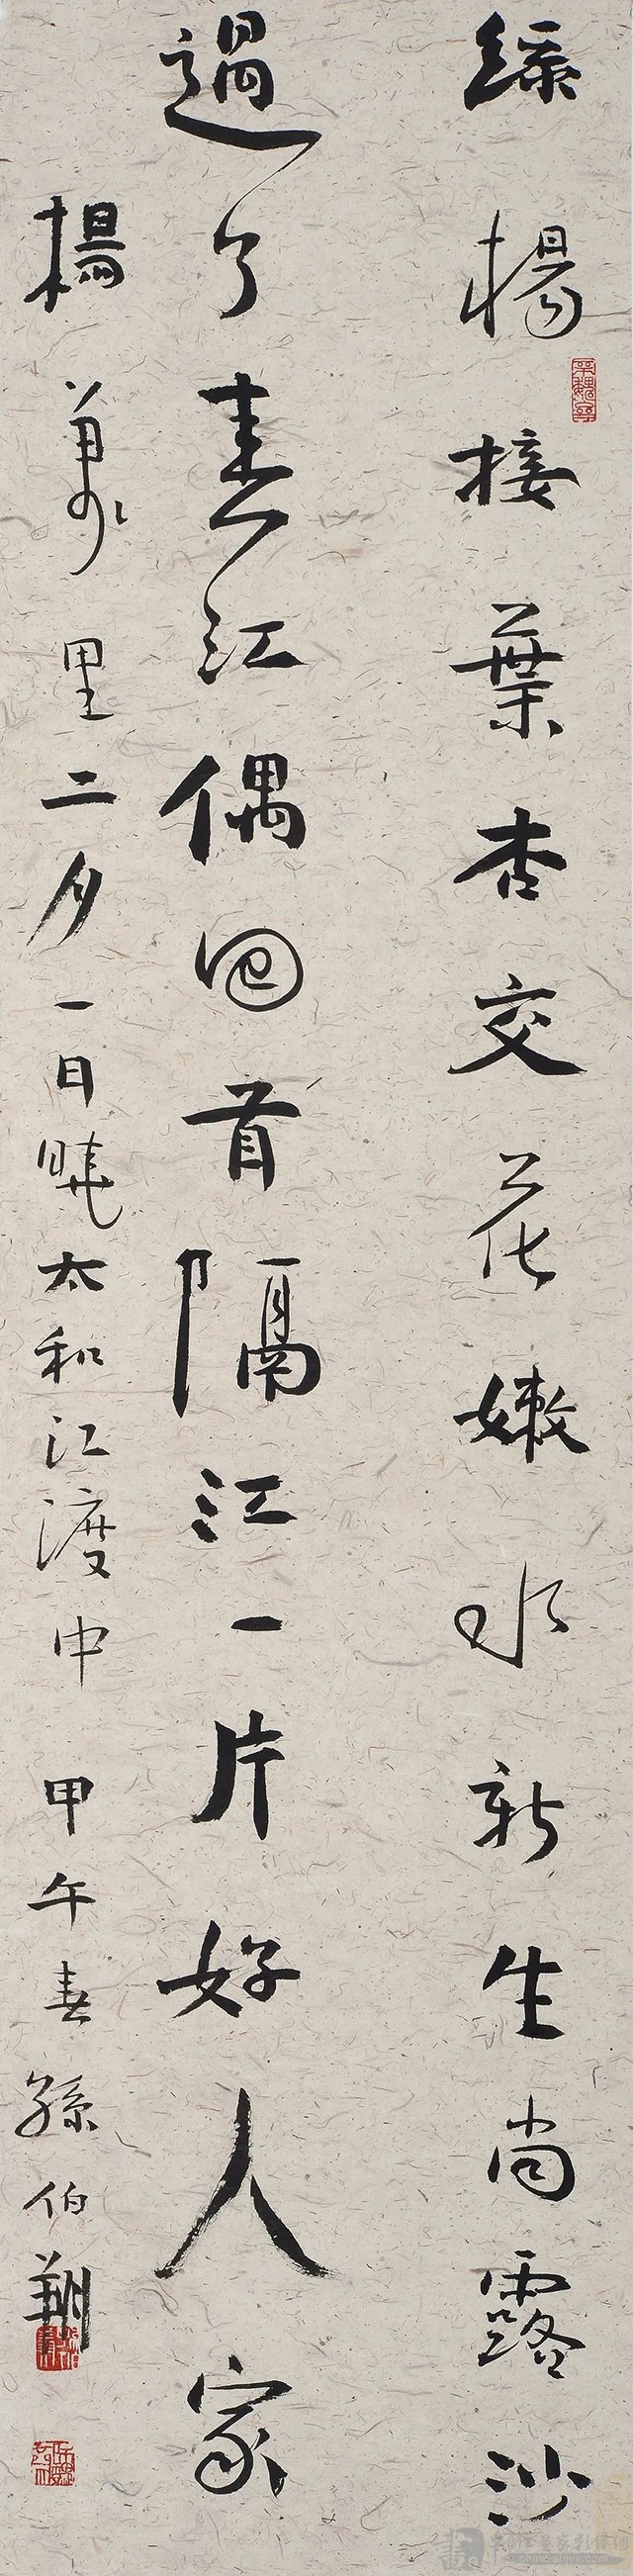 綠楊接葉杏交花嫩水新生尚露沙
過了春江偶回首隔江一片好人家
楊萬里二月一日曉太和江渡中 甲午春孫伯翔